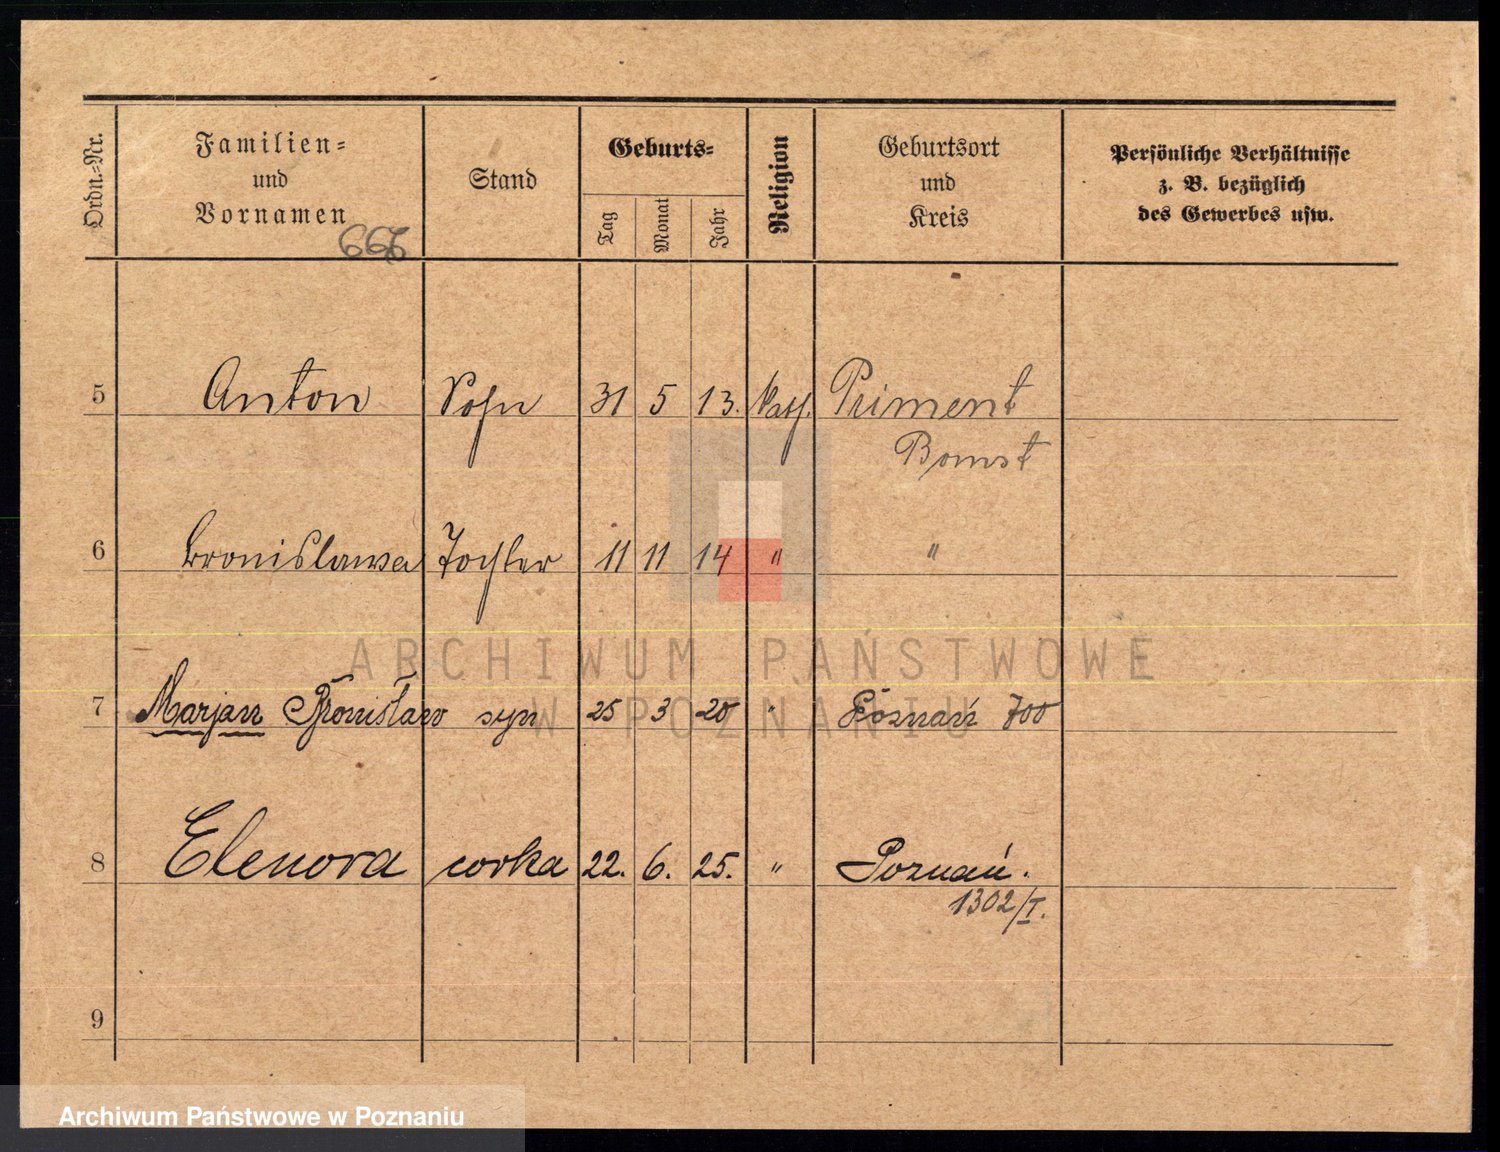 Ordn.-Nr.
Familien-
und
Vornamen
Stand
Geburts-
Tag
Monat
Jahr
Religion
Geburtsort
und
Kreis
Persönliche Verhältnisse
z. B. bezüglich
des Gewerbes usw.
666
5 Anton Sohn 31 5 13. kath. Priment
Bomst
6 Bronislawa Tochter 11 11 14 " "
7 Marjan Bronisław syn 25 3 20 " Poznań 700
8 Elenora corka 22. 6. 25. " Poznań.
1302/I.
9
ARCHIWUM PAŃSTWOWE
W POZNANIU
Archiwum Państwowe w Poznaniu